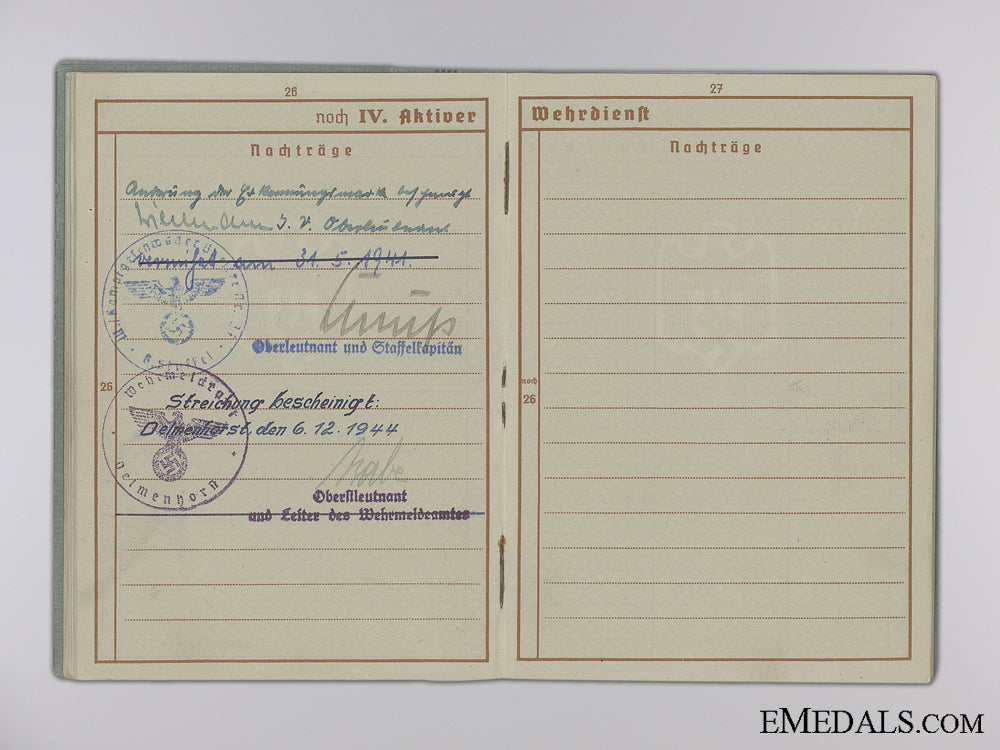 26
noch IV. Aktiver
Nachträge
Änderung der Erkennungsmarke bescheinigt
I. V. Oberleutnant
Vermißt am 31. 5. 1941.
Oberleutnant und Staffelkapitän
6. Staffel
26
Wehrmeldeamt
Streichung bescheinigt:
Delmenhorst, den 6. 12. 1944
Delmenhorst
Oberstleutnant
und Leiter des Wehrmeldeamtes
27
Wehrdienst
Nachträge
noch
26
EMEDALS.COM